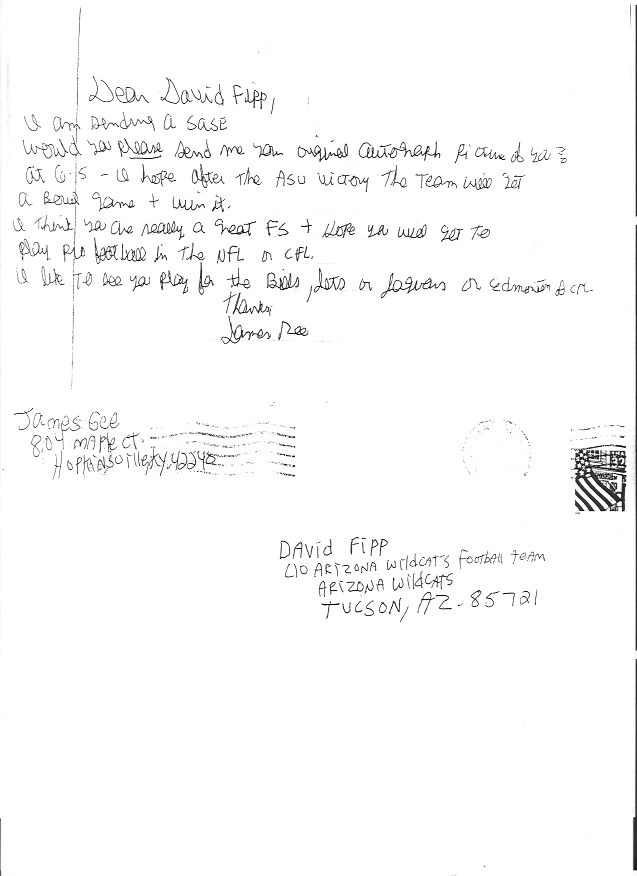 Dear David Fipp,
I am sending a SASE
would you please send me your original autograph picture of you?
at 6-5 - I hope after the ASU victory the team will get
a Bowl game + win it.
I think you are really a great FS + hope you will get to
play pro football in the NFL or CFL.
I like to see you play for the Bills, Jets or Jaguars or Edmonton of CFL
Thanks,
James Gee
James Gee
804 MAPLE CT.
HOPKINSVILLE, KY. 42240
32
DAVID FIPP
C/O ARIZONA WildCATS FOOTBALL TEAM
ARIZONA WILDCATS
TUCSON, AZ. 85721